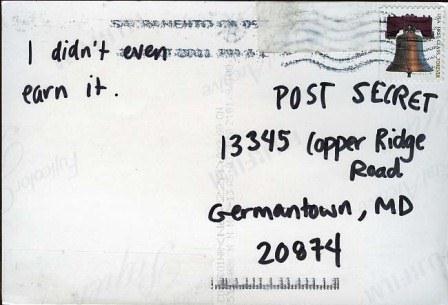 SACRAMENTO CA 95
I didn't even
earn it.
POST SECRET
13345 Copper Ridge
Road
Germantown, MD
20874